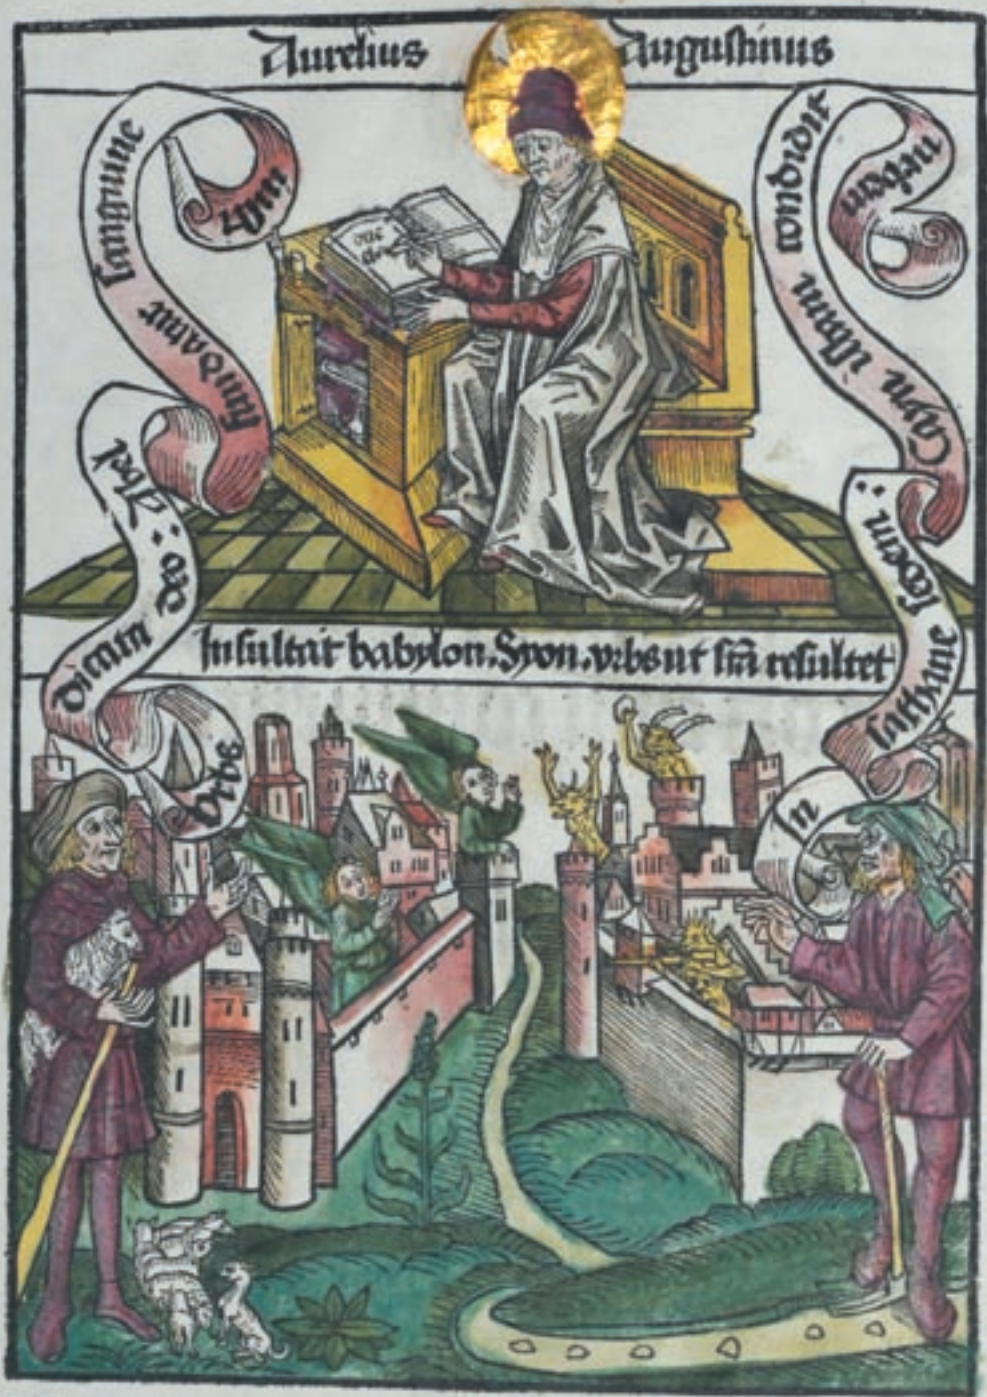 Aurelius Augustinus
Vrbs dicata deo : Abel fundatur sanguine
In sathane sedem : Cayn istam condidit urbem
Insultat babylon. Syon. vrbs ut resultet